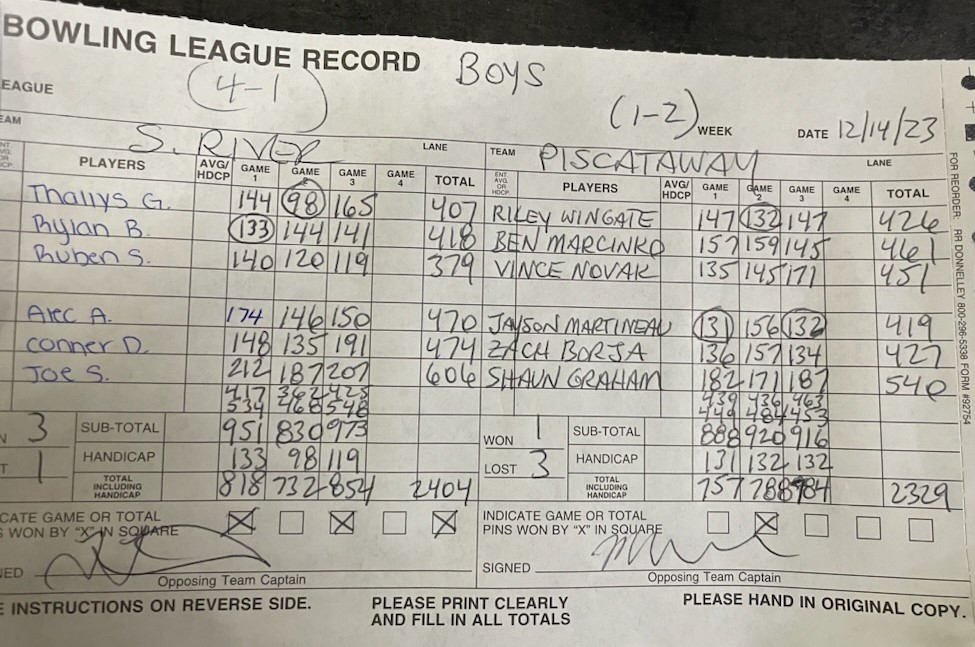 BOWLING LEAGUE RECORD BOYS
EAGUE (4-1) (1-2) WEEK DATE 12/14/23
EAM S. RIVER LANE TEAM PISCATAWAY LANE
PLAYERS AVG/HDCP GAME 1 GAME 2 GAME 3 GAME 4 TOTAL ENT. AVG. OR HDCP PLAYERS AVG/HDCP GAME 1 GAME 2 GAME 3 GAME 4 TOTAL
Thallys G. 144 98 165 407 RILEY WINGATE 147 132 147 426
Rylan B. 133 144 141 418 BEN MARCINKO 157 159 145 461
Ruben S. 140 120 119 379 VINCE NOVAK 135 145 171 451
Alec A. 174 146 150 470 JAYSON MARTINEAU 131 156 132 419
Conner D. 148 135 191 474 ZACH BORJA 136 157 134 427
Joe S. 212 187 207 606 SHAUN GRAHAM 182 171 187 540
417 362 425 439 436 463
534 468 548 449 484 453
3 SUB-TOTAL 951 830 973 WON 1 SUB-TOTAL 888 920 916
1 HANDICAP 133 98 119 LOST 3 HANDICAP 131 132 132
TOTAL INCLUDING HANDICAP 818 732 854 2404 TOTAL INCLUDING HANDICAP 757 788 784 2329
CATE GAME OR TOTAL INDICATE GAME OR TOTAL
WON BY "X" IN SQUARE X X X PINS WON BY "X" IN SQUARE X
NED SIGNED
Opposing Team Captain Opposing Team Captain
E INSTRUCTIONS ON REVERSE SIDE. PLEASE PRINT CLEARLY PLEASE HAND IN ORIGINAL COPY.
AND FILL IN ALL TOTALS
FOR REORDER: RR DONNELLEY 800-296-5338 FORM #92754